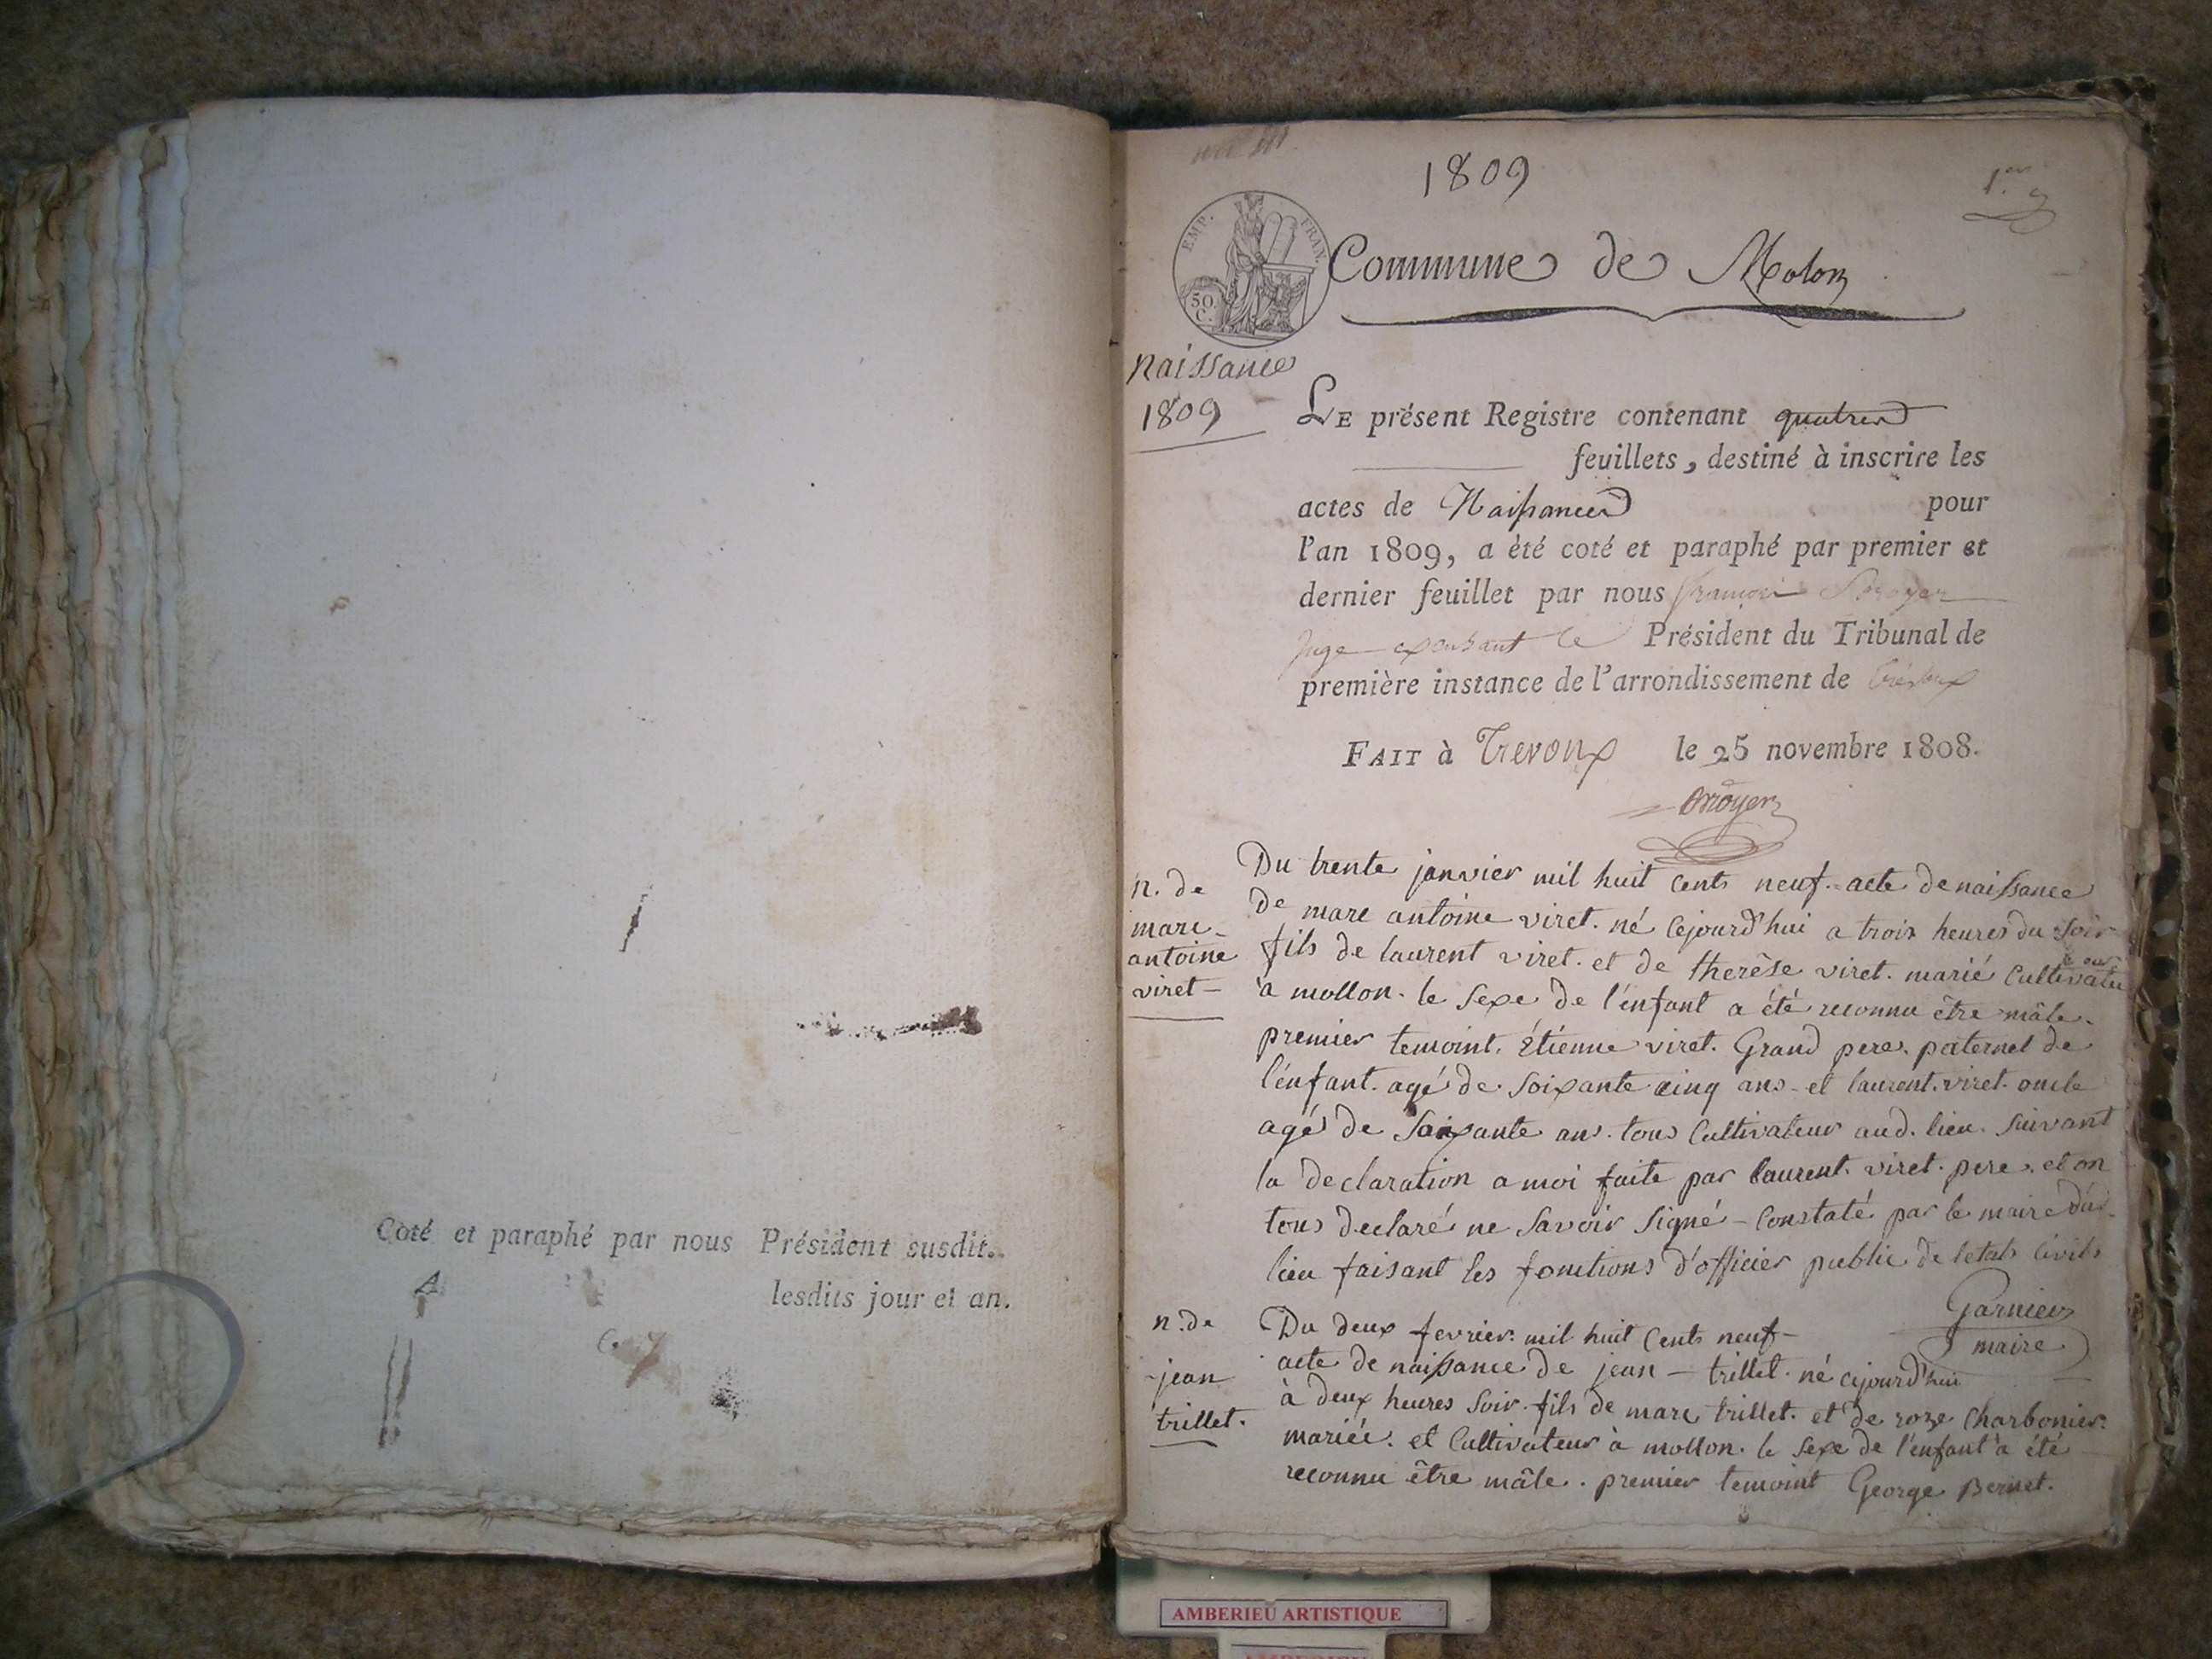 Coté et paraphé par nous Président susdit.
lesdits jour et an.
1809
1.er
EMP. FRAN.
50 C.
Commune de Molon
naissance
1809
LE présent Registre contenant quatre
feuillets, destiné à inscrire les
actes de Naissances pour
l'an 1809, a été coté et paraphé par premier et
dernier feuillet par nous françois
juge exerçant le Président du Tribunal de
première instance de l'arrondissement de Trévoux
FAIT à Trevoux le 25 novembre 1808.
n. de
marc
antoine
viret
Du trente janvier mil huit cents neuf. acte de naissance
de marc antoine viret. né cejourd'hui a trois heures du soir
fils de laurent viret. et de therèse viret. marié cultivateur
à mollon. le sexe de l'enfant a été reconnu être mâle.
premier temoint. Étienne viret. Grand pere. paternel de
l'enfant. agé de soixante cinq ans et laurent. viret. oncle
agé de soixante ans. tous cultivateur aud. lieu. suivant
la declaration a moi faite par laurent. viret. pere. et on
tous declaré ne savoir signé - constaté par le maire dud.
lieu faisant les fonctions d'officier public de letats civils
Garnier
maire
n. de
jean
trillet.
Du deux fevrier. mil huit cents neuf -
acte de naissance de jean - trillet. né cejourd'hui
à deux heures soir. fils de marc trillet. et de roze charbonier.
mariée. et cultivateur à mollon. le sexe de l'enfant à été
reconnu être mâle. premier temoint George Bernet.
AMBERIEU ARTISTIQUE